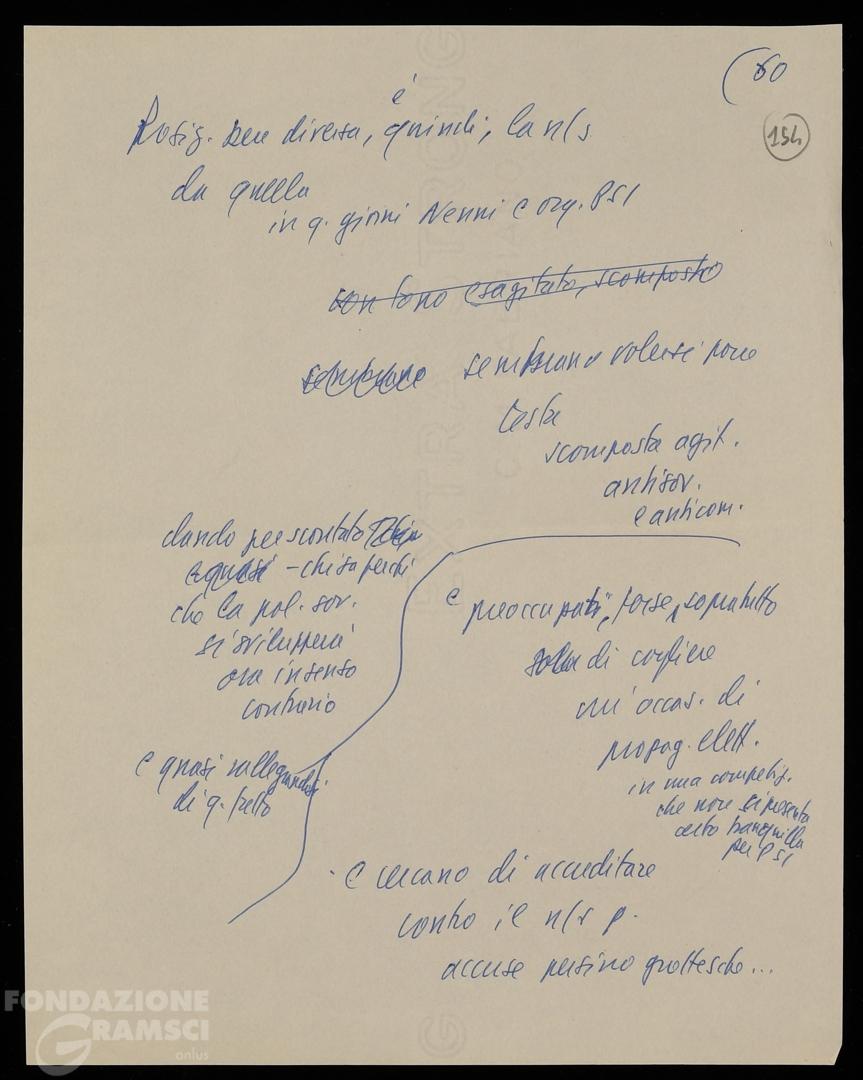 (60
154
Posiz. ben diversa, è quindi, la n/s
da quella
in q. giorni Nenni e org. PSI
con tono esagitato, scomposto
sembrano sembrano volersi porre
testa
scomposta agit.
antisov.
e anticom.
dando per scontato
e quasi - chi sa perché
che la pol. sov.
si svilupperà
ora in senso
contrario
e quasi rallegrandosi
di q. fatto
e preoccupati, forse, sopratutto
di cogliere
un' occas. di
propag. elett.
in una competiz.
che non si presenta
certo tranquilla
per PSI
- e cercano di accreditare
contro il n/s p.
accuse persino grottesche...
FONDAZIONE
GRAMSCI
onlus
EXTRA STRONG